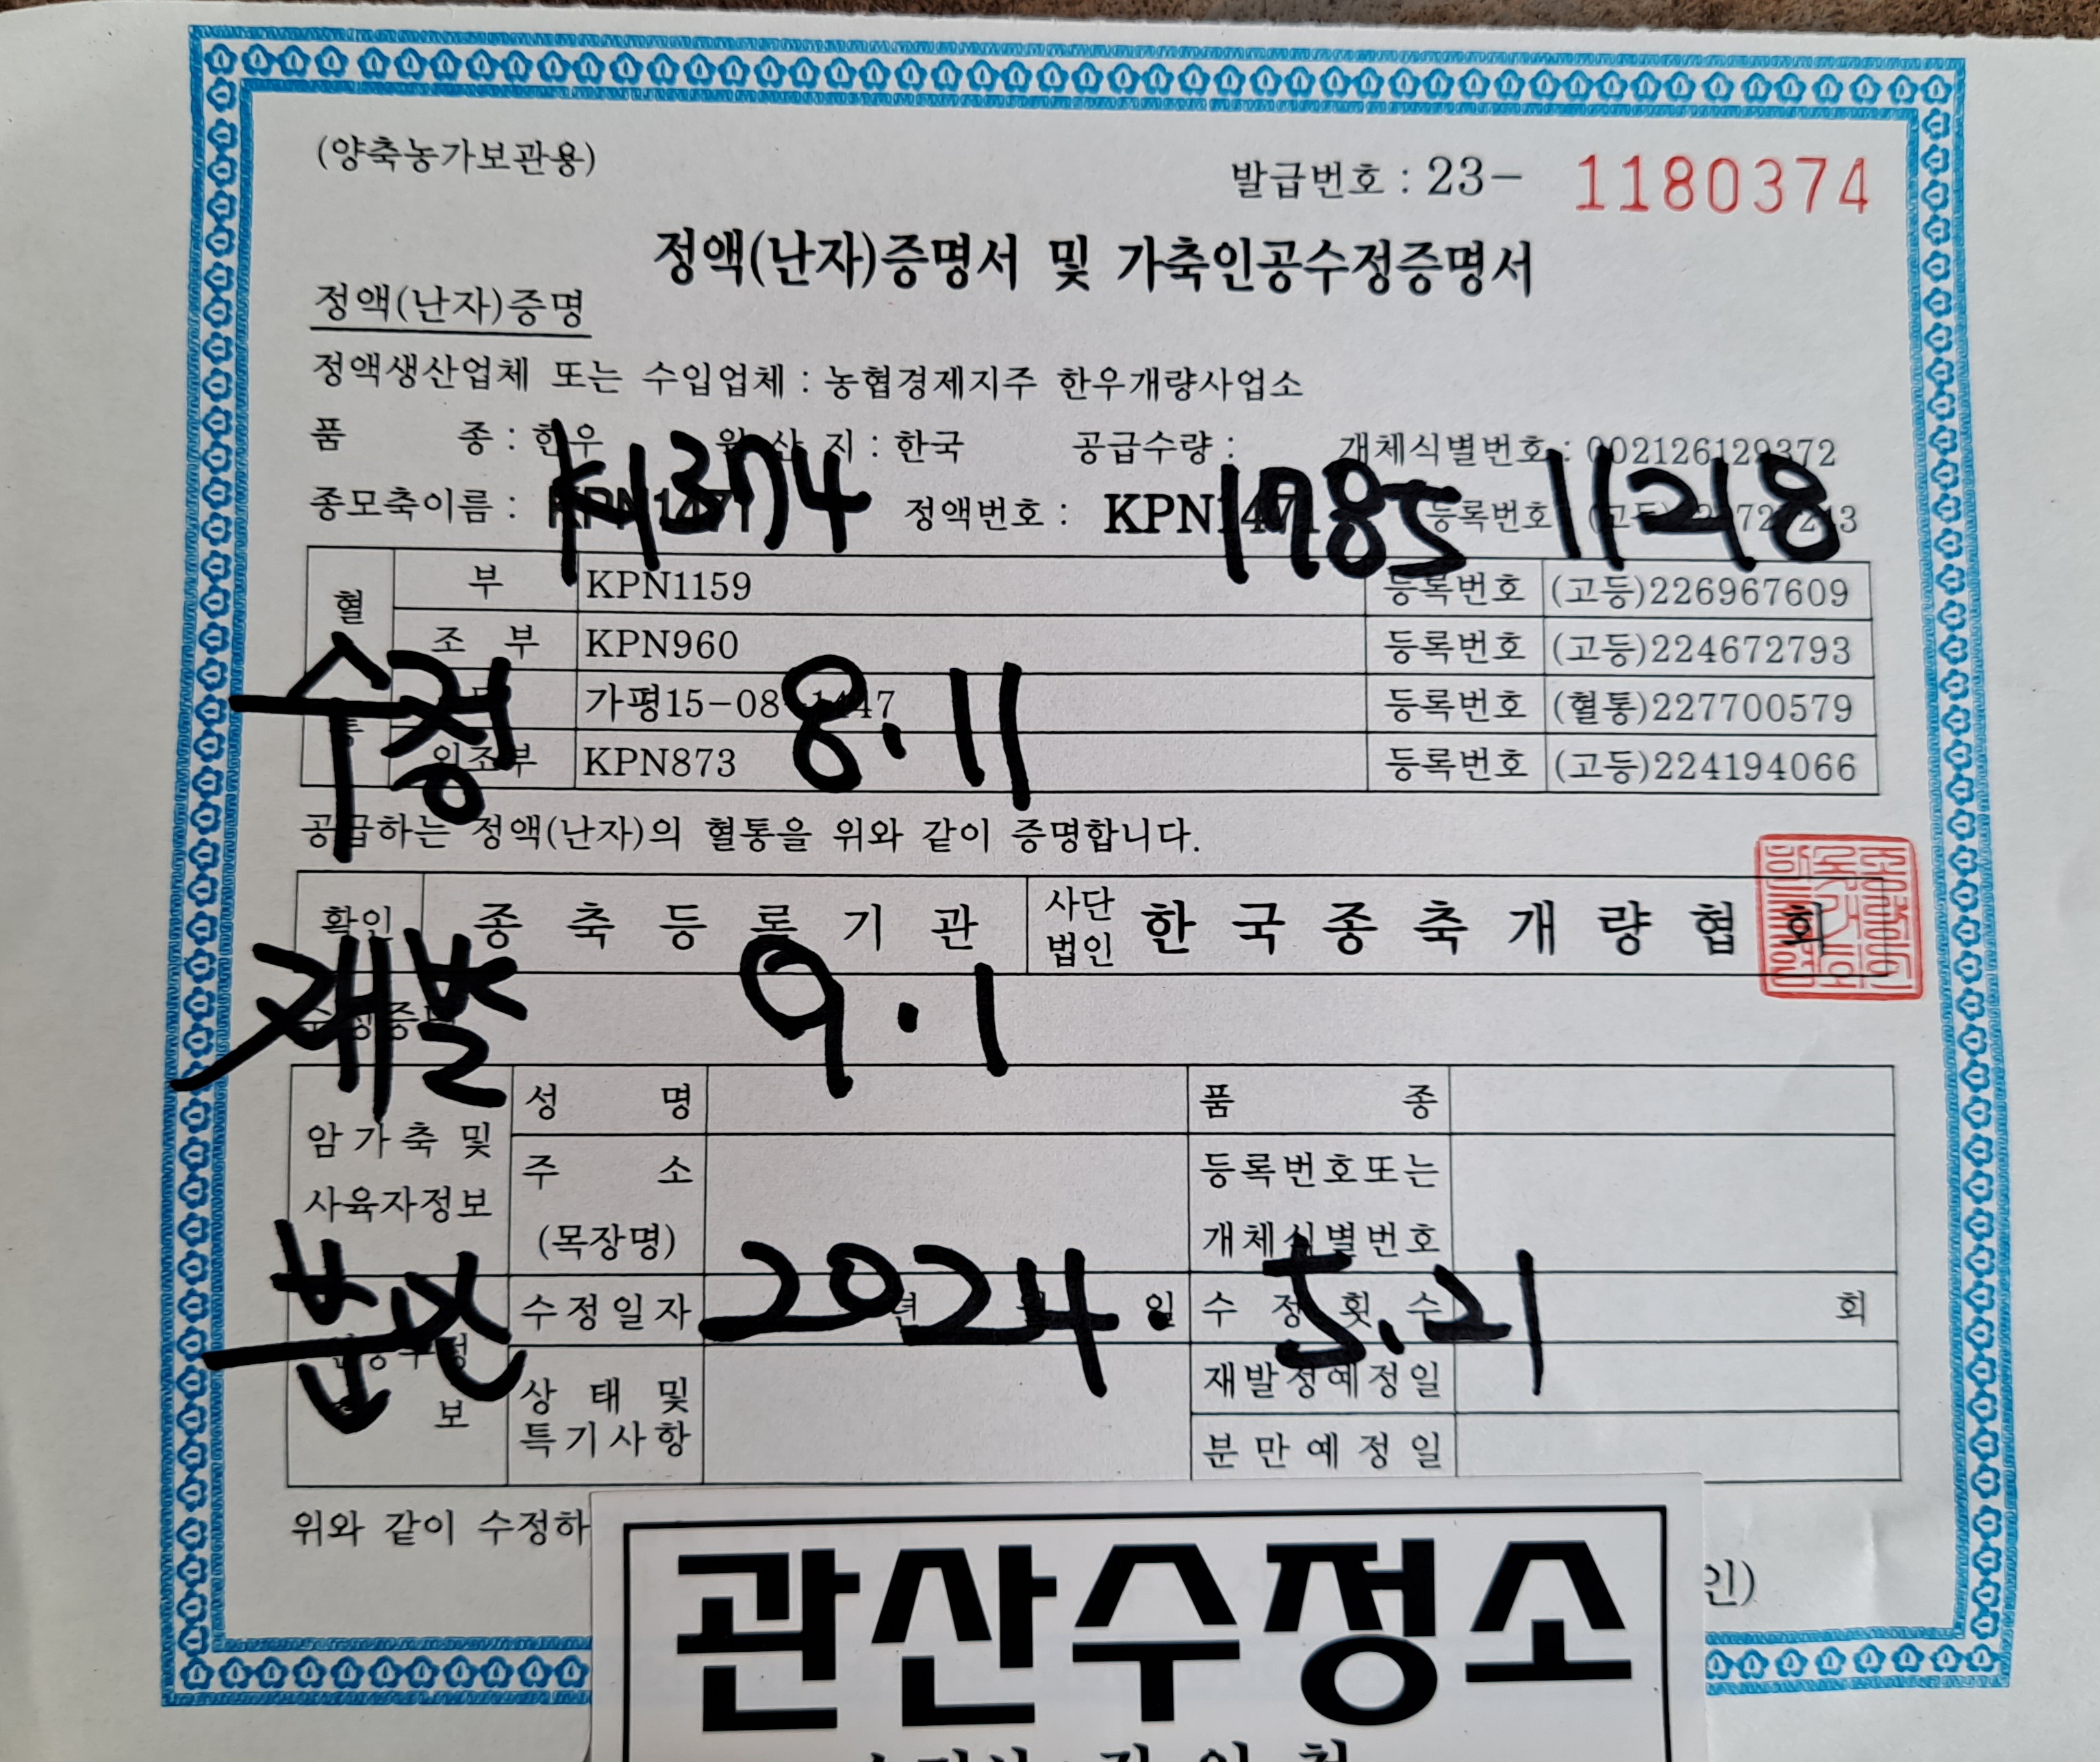 (양축농가보관용)
발급번호 : 23- 1180374
정액(난자)증명서 및 가축인공수정증명서
정액(난자)증명
정액생산업체 또는 수입업체 : 농협경제지주 한우개량사업소
품 종 : 한우 원산지 : 한국 공급수량 : 개체식별번호 : 002126129372
K1374 1785 11218
종모축이름 : 정액번호 : KPN1471 등록번호
혈통 부 KPN1159 등록번호 (고등)226967609
조부 KPN960 등록번호 (고등)224672793
가평15-08 등록번호 (혈통)227700579
외조부 KPN873 등록번호 (고등)224194066
수정 8.11
공급하는 정액(난자)의 혈통을 위와 같이 증명합니다.
확인 종축등록기관 사단법인 한국종축개량협회
재발 9.1
수정증명
암가축 및 사육자정보 성명 품종
주소 (목장명) 등록번호또는 개체식별번호
분만 2024. 5.21
수정일자 년 일 수정횟수 회
상태 및 특기사항 재발정예정일
분만예정일
위와 같이 수정하
인)
관산수정소